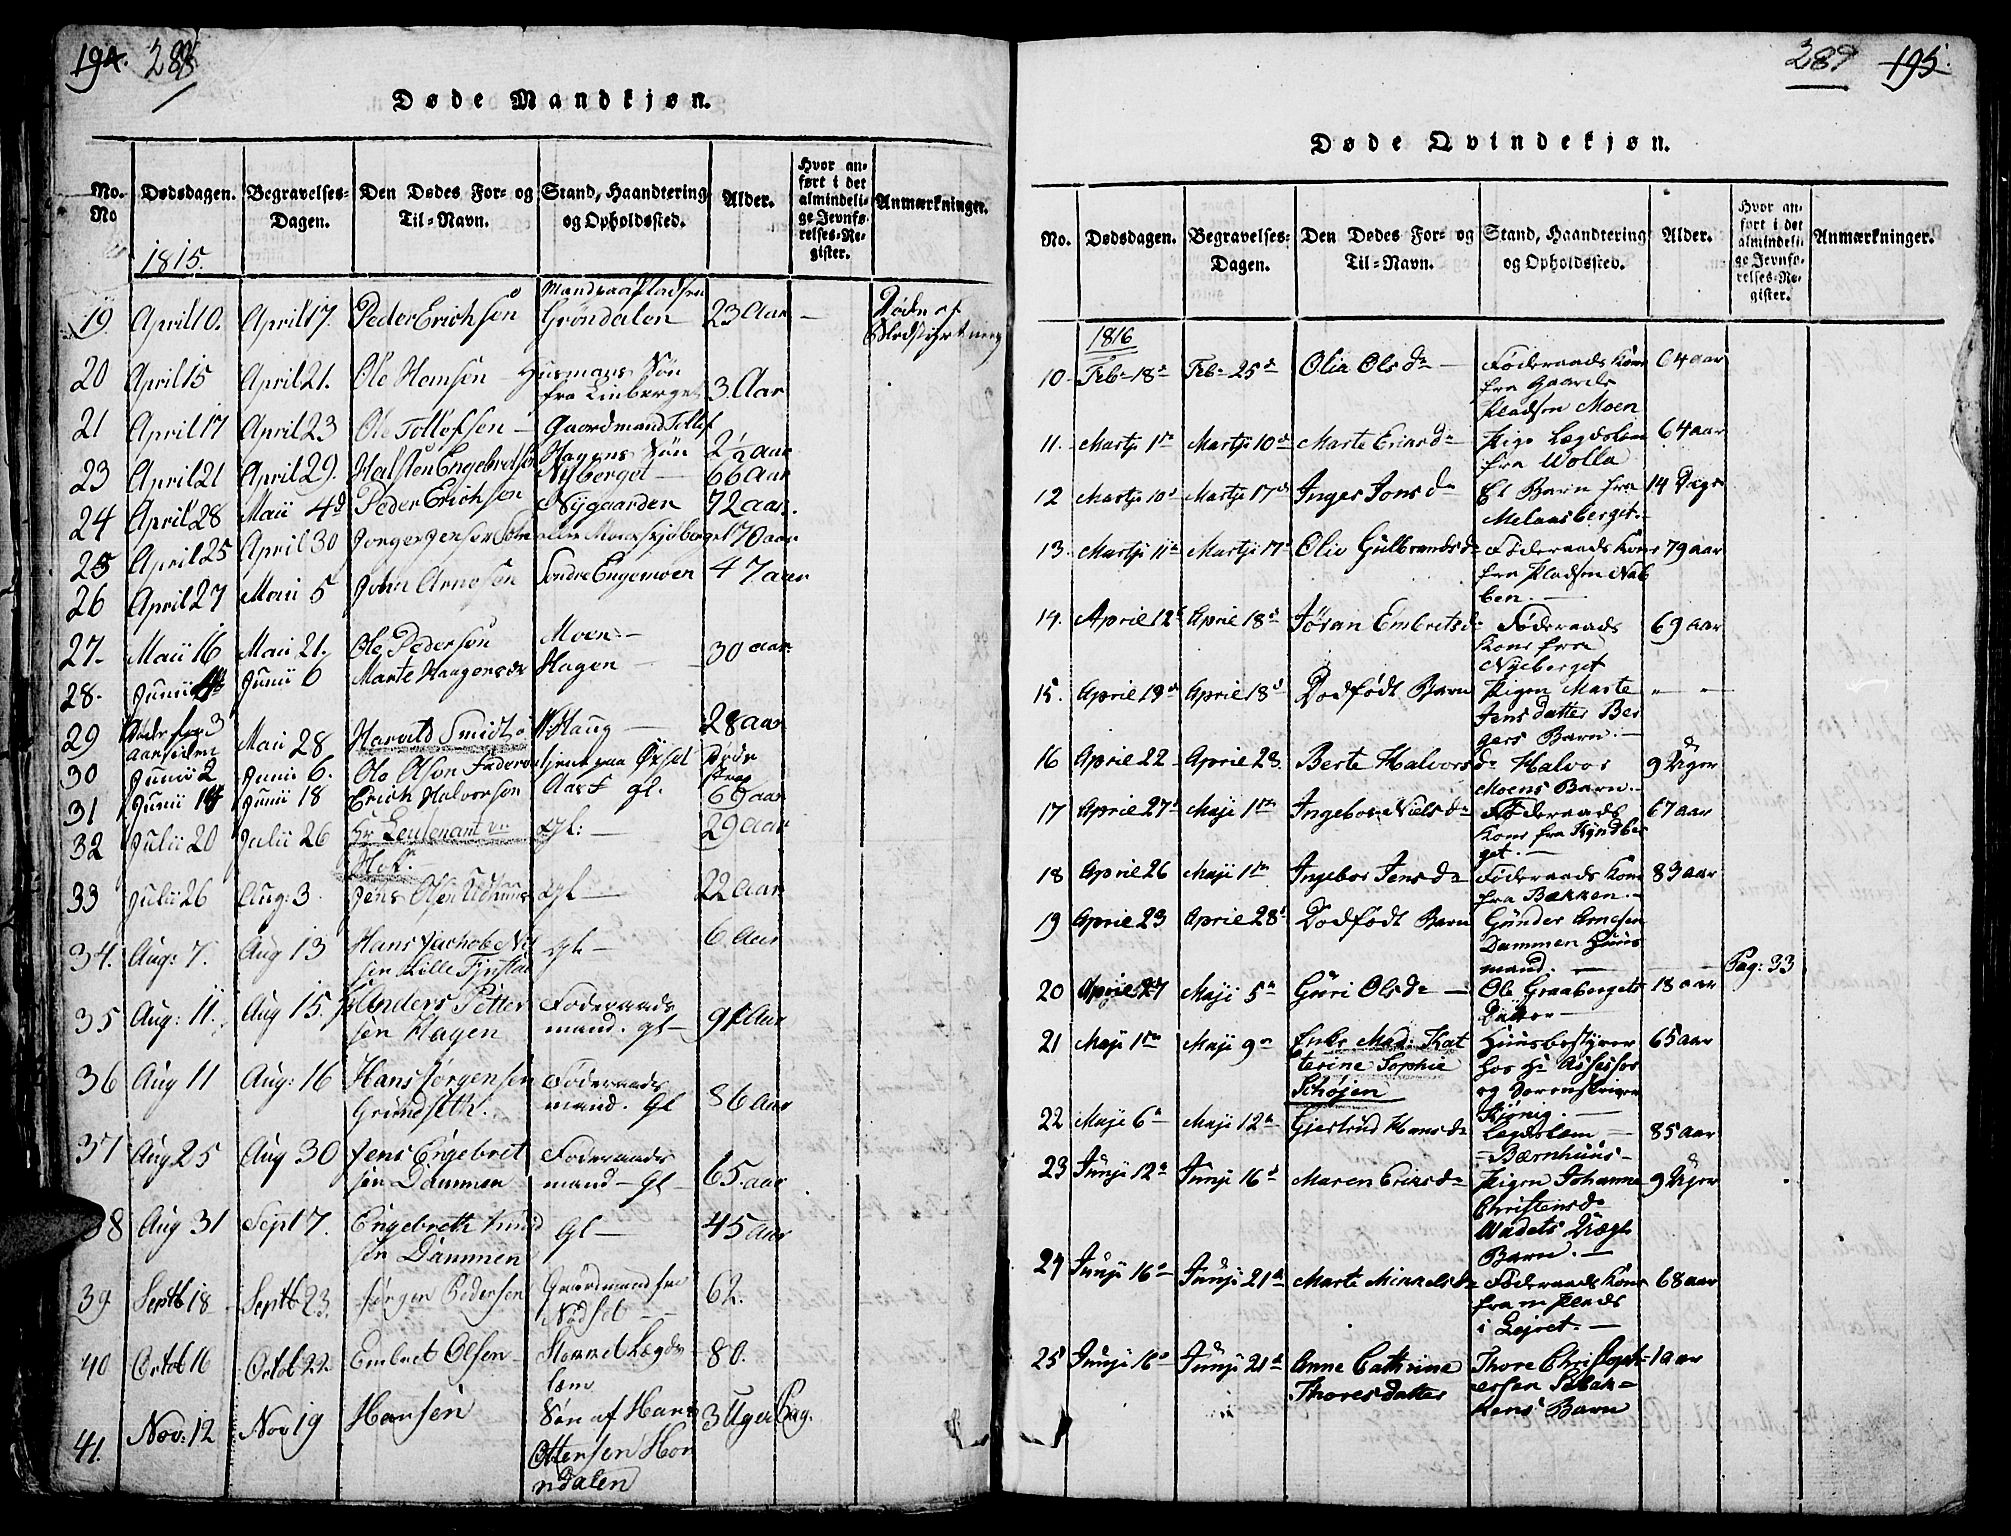 194. 288
Døde Mandkjøn.
No. Dødsdagen. Begravelses-Dagen. Den Dødes For- og Til-Navn. Stand, Haandtering og Opholdssted. Alder. Hvor anført i det almindelige Jevnførelses-Register. Anmærkninger.
No
1815.
Mand paa Pladsen Døde af
19 April 10. April 17. Peder Erichsen Grøndalen 23 Aar — Blodstyrtning
20 April 15 April 21. Ole Hansen Husmans Søn
fra Linberget 3. Aar
21 April 17 April 23 Ole Tollefsen — Gaardmand Tollef
Hagens Søn 2½ aar
23 April 21 April 29. Halsten Engebretsøn Nyberget — 66 Aar
24 April 28 Maii 4d Peder Erichsen Nygaarden 72 aar.
25 April 25 April 30 70 aar
26 April 27 Maii 5 John Arnesen Søndre Engemoen 47 aar
27. Maii 16 Maii 21. Ole Pedersen Moen —
28. Junii Junii 6 Marte Haagensdr Hagen — 30 aar
29 Døde for 3
aar siden Maii 28 Harald Smidt Haug — 28 aar
30 Junii 2 Junii 6. Ole Olsen tient paa Øxset Døde
strax
31 Junii 14 Junii 18 Erich Halvorsen Aast gl. aar
32 Julii 20 Julii 26 Hr Leutenant gl: — 29 aar
33 Julii 26 Aug: 3 Jens Olsen gl — 22 aar
34. Aug: 7. Aug 13 Hans Jachob Nil
sen Lille Fjestad gl — 6 Aar
35 Aug: 11. Aug 15. Anders Petter
sen Hagen Føderaads
mand. gl — 91 Aar
36 Aug 11 Aug: 16 Hans Jørgensen
Grundseth. Føderaads
mand. gl 86 Aar
37 Aug 25 Aug 30 Jens Engebret
sen Dammen Foderaads
mand — gl — 65. aar
38 Aug 31 Sept 7. Engebreth Knud
sen Dammen gl — 45 aar
39 Septb 18 Septb 23. Jørgen Pedersen Gaardmand fra
Nødset — 62.
40 Octob 16 Octob 22 Embret Olsen — Lægds
lem 80.
41. Nov: 12 Nov 19 Hansen Søn af Hans
Ottersen Hon
ndalen 3 Uger Pag.
289 195.
Døde Qvindekjøn.
No. Dødsdagen. Begravelses-Dagen. Den Dødes For- og Til-Navn. Stand, Haandtering og Opholdssted. Alder. Hvor anført i det almindelige Jevnførelses-Register. Anmærkninger.
1816
10. Feb. 18d Feb. 25d Olia Olsdr — Føderaads Kone
fra Gaards
pladsen Moen 64 aar
11. Martji 1te Martji 10de Marte Eriasdr Pige Lægdslem
fra Wolla 64 aar
12 Martji 10d Martji 17de Inger Jonsdr Et Barn fra
Melaasberget. 14 Dage
13. Martji 11te Martji 17d Olia Gulbrandsdr Føderaads Kone
fra Pladsen Nab
ben. — 79 aar
14. Aprile 12te Aprile 18d Jøran Embretsdr Føderaads
Kone fra
Nyeberget 69 aar
15. Aprile 13de Aprile 18d Dødfødt Barn Pigen Marte
Jensdatter Ber
gers Barn. — „ „
16 Aprile 22 Aprile 28. Berte Halvors dr Halvor
Moens Barn. — 9 Uger
17 Aprile 27d Maji 1te Ingebor Nielsdr Føderaads
Kone fra Kyndber
get. — 67 aar
18 Aprile 26 Maji 1te Ingebor Jensdr Føderaads Kone
fra Bakken. — 83 aar
19 Aprile 23 Aprile 28d Dødfødt Barn Gunder Arnesen
Dammen Huus
mand. — — Pag: 33
20 Aprile 27 Maji 5te Guri Olsdr — Ole Graabergets
Datter — 18 aar
21 Maji 1te Maji 9de Enke Mad: Kat
terine Sophie
Schøjen Huusbestyrer
hos Hr Assessor
og Sorenskriver
Kjønig. — 65 aar
22 Maji 6te Maji 12te Gjertrud Hansdr Lægdslem —
Bærnhuus — 85 aar
23 Junji 12te Junji 16d Maren Eriksdr Pigen Johanne
Christensdr
Wadets Uægte
Barn. — 9 Uger
24 Junji 16de Junji 21de Marte Mikkelsdr Føderaads Kone
fra m Plads
i Lejret. — 68 aar
25 Junji 16d Junji 21de Anne Cathrine
Thoresdatter Thore Christoph=
ersen Sebak=
kens Barn 1 aar